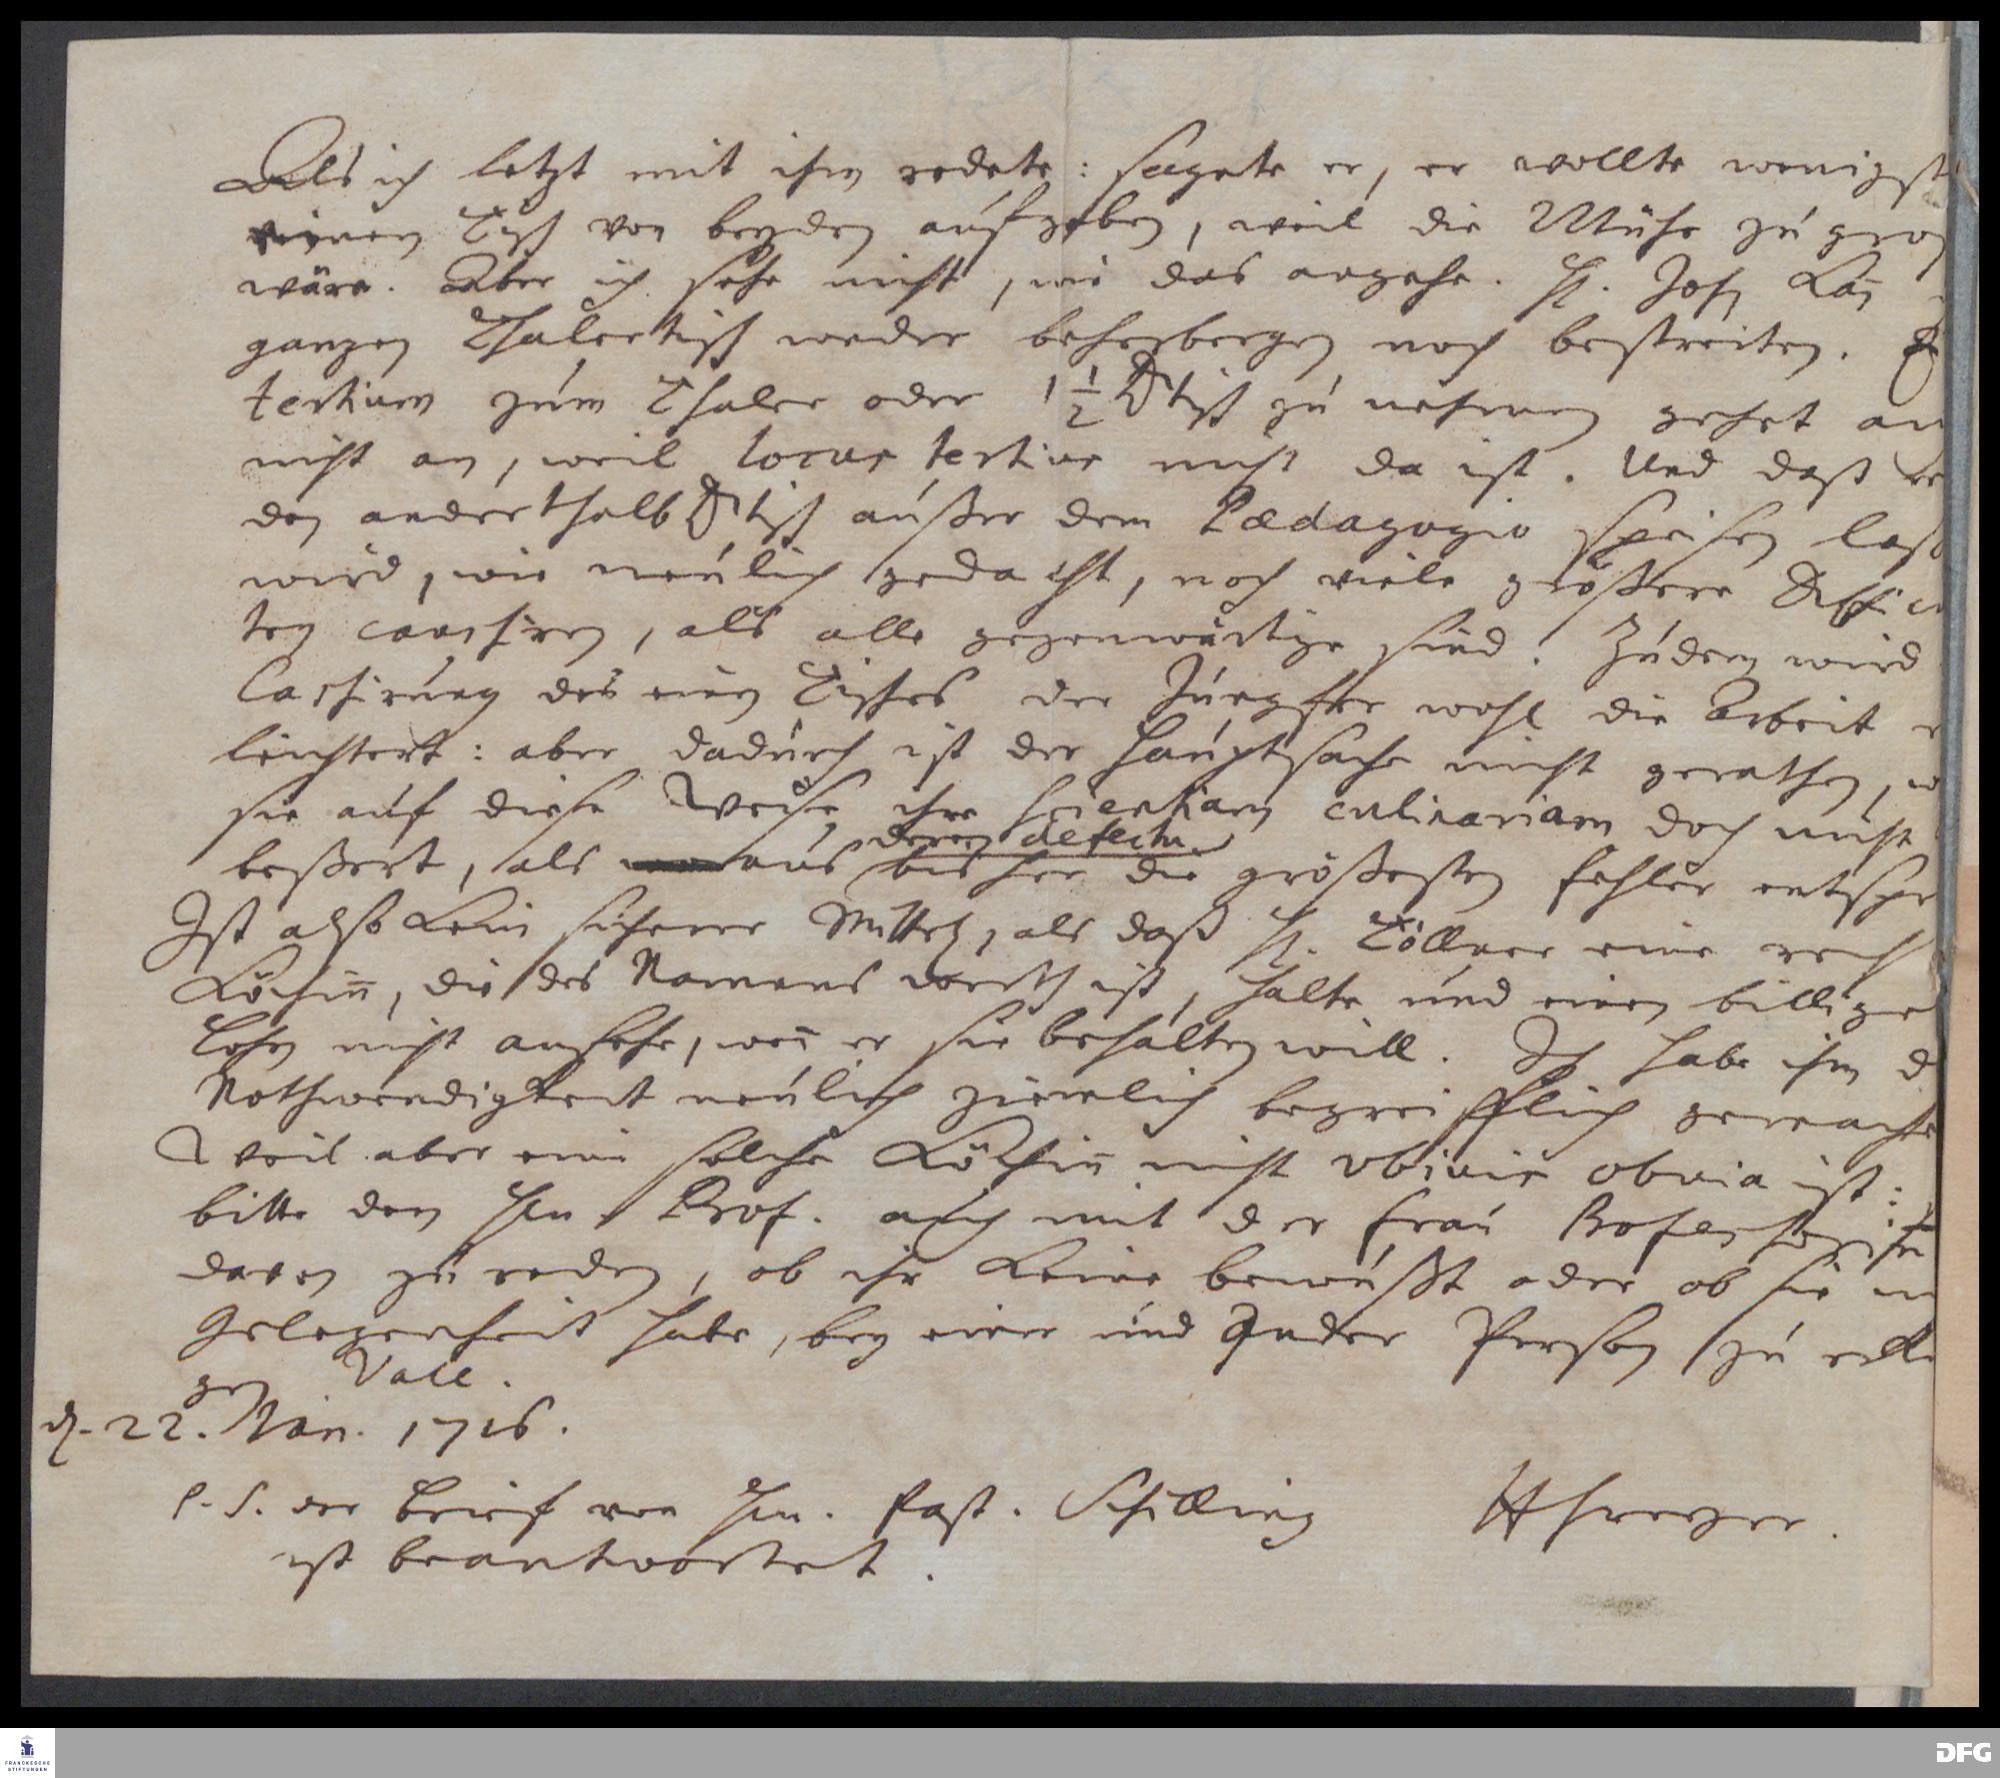 Als ich letzt mit ihm redete: sagete er, er wollte wenigst
einen Tisch von beyden aufgeben, weil die Mühe zu groß
wäre. Aber ich sehe nicht, wie das angehe. H. Joh. Kañ
ganzen Thalertisch weder beherbergen noch bestreiten.
tertium zum Thaler oder 1 1/2 tisch zu nehmen gehet au
nicht an, weil locus tertius nicht da ist. Und daß er
den anderthalb tisch außer dem Pædagogio speisen laß
wird, wie neulich gedacht, noch viele größere Difficu
ten caussiren, als alle gegenwärtige sind. Zudem wird
Cassirung des einen Tisches der Jungfer wohl die Arbeit e
leichtert: aber dadurch ist der Hauptsache nicht gerathen, w
sie auf diese Weise ihre scientiam culinariam doch nicht
deren defectu
beßert, als aus bisher die größesten Fehler entspr
Ist also kein sicherer Mittel, als daß H. Töllner eine rech
Köchiñ, die des Namens werth ist, halte und einen billige
Lohn nicht ansehe, weñ er sie behalten will. Ich habe ihm d
Nothwendigkeit neulich ziemlich begreifflich gemacht
Weil aber eine solche Köchiñ nicht ubivis obvia ist:
bitte den Hrn. Prof. auch mit der Frau
davon zu reden, ob ihr keine bewußt oder ob sie n
Gelegenheit habe, bey einer und Ander Person zu erku
gen Vale.
d. 22. 1716.
P. S. der Brief von Hrn. Past. Schilling HFreyer.
ist beantwortet.
FRANCKESCHE
STIFTUNGEN
DFG